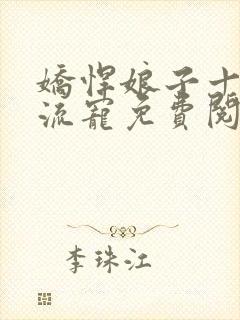 嬌悍娘子十
流寵免費閱
李珠江